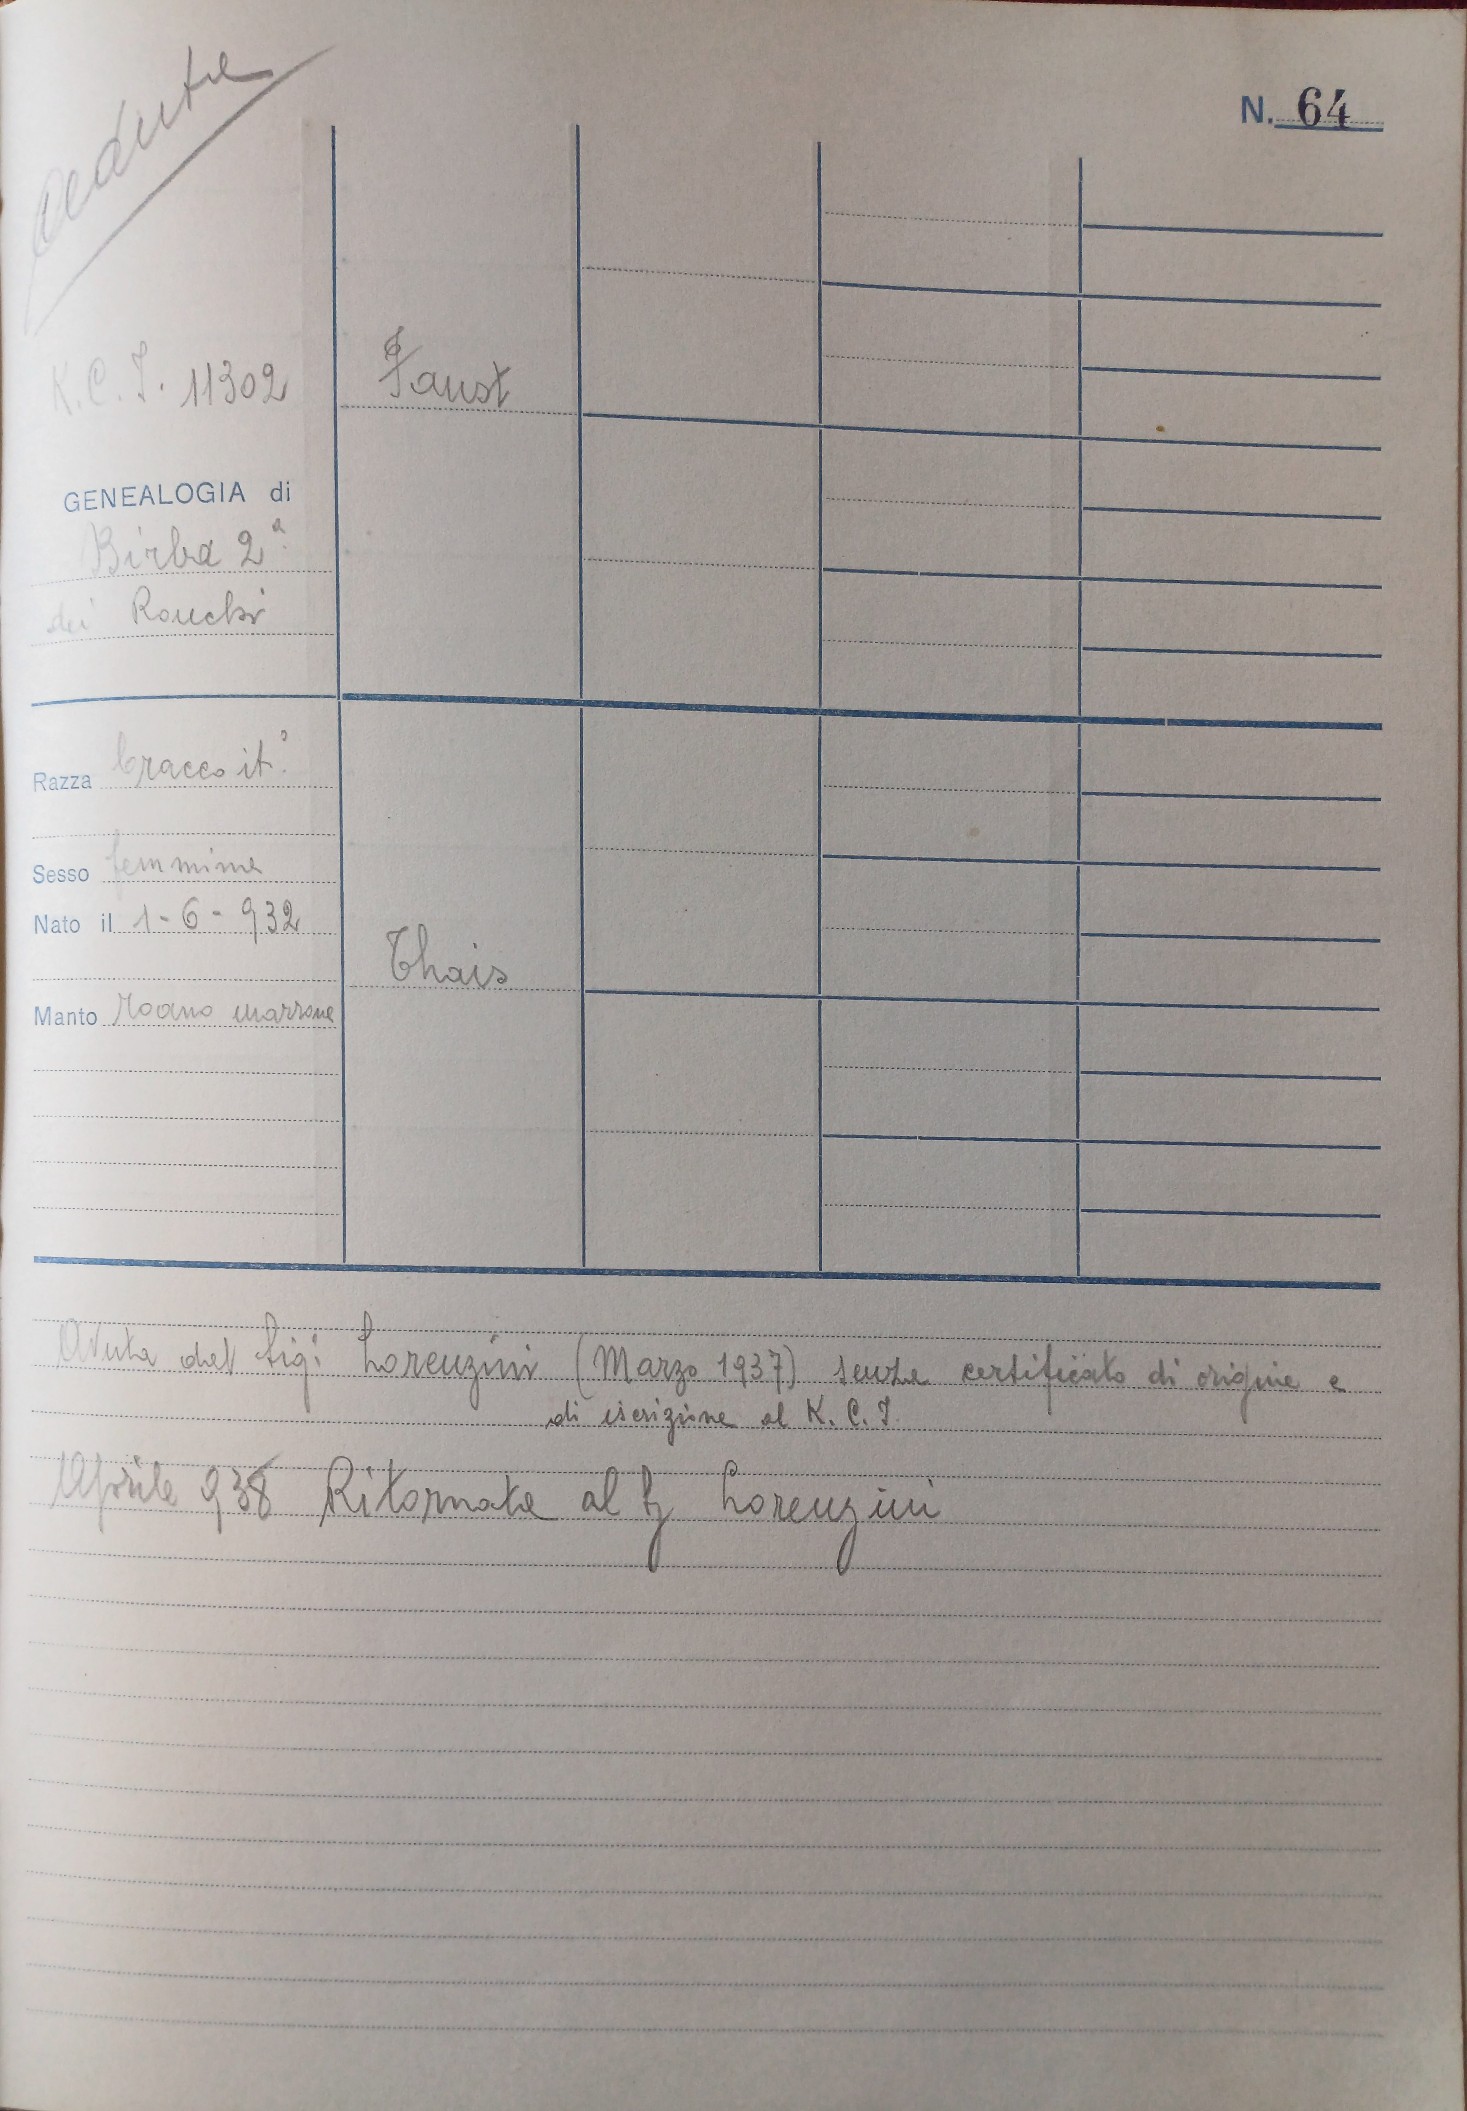 ceduta
N. 64
K. C. I. 11302
Faust
GENEALOGIA di
Birba 2ª
dei Ronchi
Razza bracco it.º
Sesso femmina
Nato il 1-6-932
Thais
Manto roano marrone
Avuta dal Sig. Lorenzini (Marzo 1937) senza certificato di origine e
di iscrizione al K. C. I.
Aprile 938 Ritornata al Lorenzini